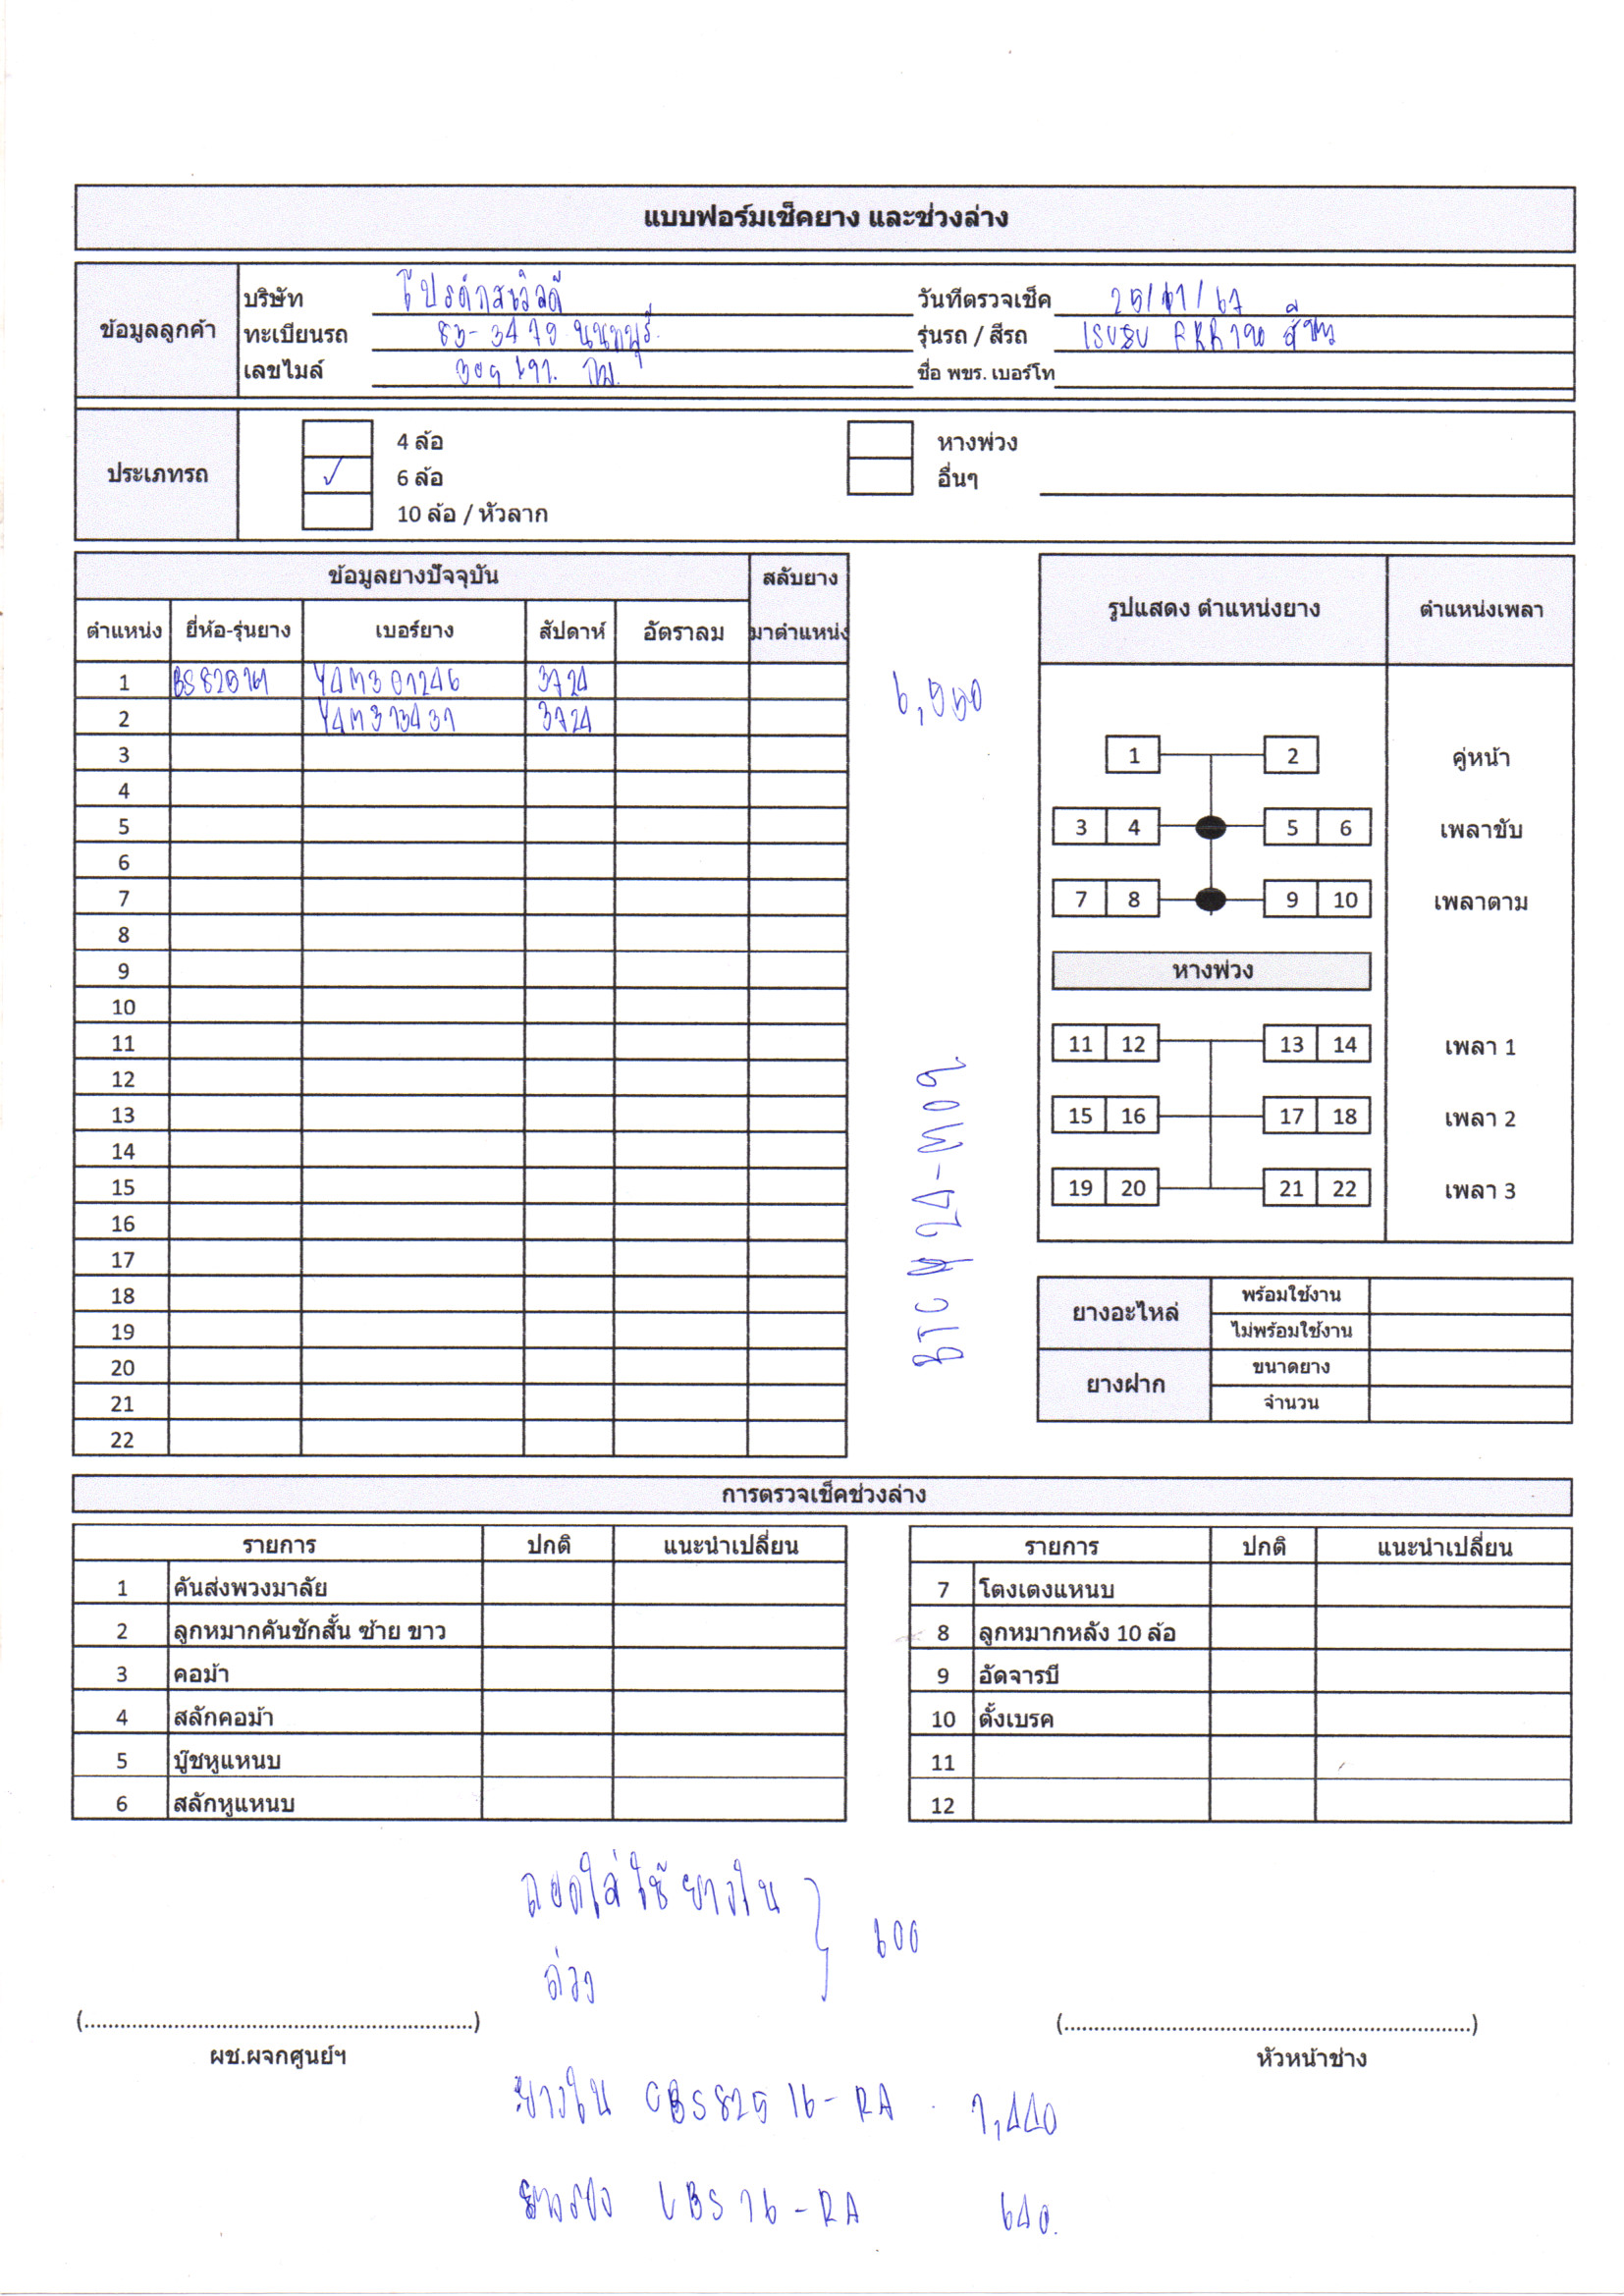 แบบฟอร์มเช็คยาง และช่วงล่าง
ข้อมูลลูกค้า
บริษัท
วันที่ตรวจเช็ค 25/11/67
ทะเบียนรถ 83-3479 นนทบุรี
รุ่นรถ / สีรถ ISUZU FRR190 สีขาว
เลขไมล์ กม.
ชื่อ พขร. เบอร์โท
ประเภทรถ
4 ล้อ
✓ 6 ล้อ
10 ล้อ / หัวลาก
หางพ่วง
อื่นๆ
ข้อมูลยางปัจจุบัน สลับยาง
ตำแหน่ง ยี่ห้อ-รุ่นยาง เบอร์ยาง สัปดาห์ อัตราลม มาตำแหน่ง
1 3724
2 3724
3
4
5
6
7
8
9
10
11
12
13
14
15
16
17
18
19
20
21
22
6,550
BTC 24-M09
รูปแสดง ตำแหน่งยาง ตำแหน่งเพลา
1 2 คู่หน้า
3 4 5 6 เพลาขับ
7 8 9 10 เพลาตาม
หางพ่วง
11 12 13 14 เพลา 1
15 16 17 18 เพลา 2
19 20 21 22 เพลา 3
ยางอะไหล่ พร้อมใช้งาน
ไม่พร้อมใช้งาน
ยางฝาก ขนาดยาง
จำนวน
การตรวจเช็คช่วงล่าง
รายการ ปกติ แนะนำเปลี่ยน
1 คันส่งพวงมาลัย
2 ลูกหมากคันชักสั้น ซ้าย ขาว
3 คอม้า
4 สลักคอม้า
5 บู๊ชหูแหนบ
6 สลักหูแหนบ
รายการ ปกติ แนะนำเปลี่ยน
7 โตงเตงแหนบ
8 ลูกหมากหลัง 10 ล้อ
9 อัดจารบี
10 ตั้งเบรค
11
12
ถอดใส่ใช้ยางใน
ถ่วง
600
(................................................................)
ผช.ผจกศูนย์ฯ
(................................................................)
หัวหน้าช่าง
ยางใน CBS825 16-RA 1,440
ยางรอง CBS16-RA 640.